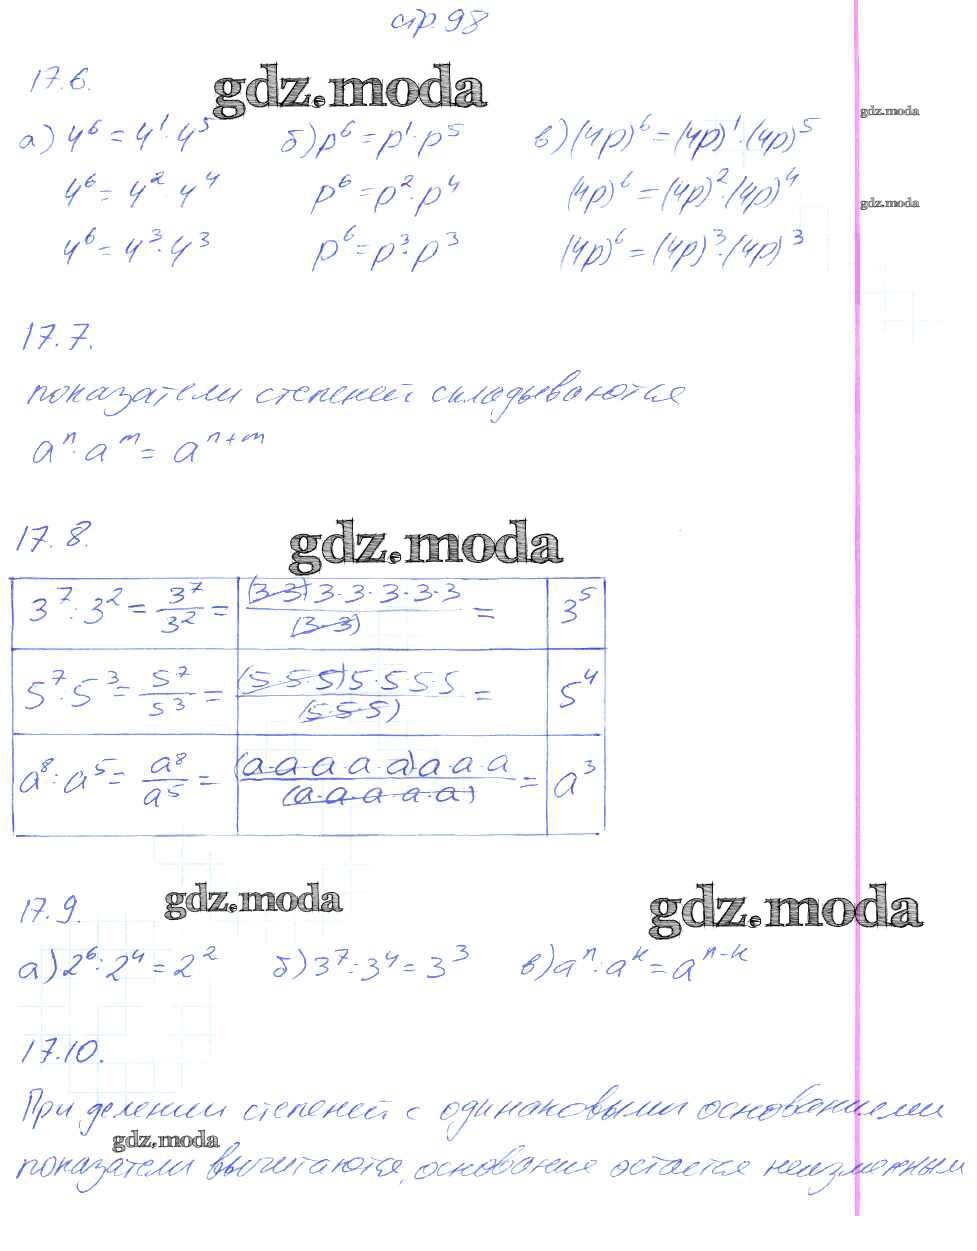 стр. 98
17.6.
gdz.moda
а) 4⁶ = 4¹ · 4⁵ б) p⁶ = p¹ · p⁵ в) (4p)⁶ = (4p)¹ · (4p)⁵
gdz.moda
4⁶ = 4² · 4⁴ p⁶ = p² · p⁴ (4p)⁶ = (4p)² · (4p)⁴
gdz.moda
4⁶ = 4³ · 4³ p⁶ = p³ · p³ (4p)⁶ = (4p)³ · (4p)³
17.7.
показатели степеней складываются
aⁿ · aᵐ = aⁿ⁺ᵐ
17.8.
gdz.moda
3⁷ : 3² = 3⁷/3² = (3·3)3·3·3·3·3/(3·3) = 3⁵
5⁷ : 5³ = 5⁷/5³ = (5·5·5)5·5·5·5/(5·5·5) = 5⁴
a⁸ : a⁵ = a⁸/a⁵ = (a·a·a·a·a)a·a·a/(a·a·a·a·a) = a³
17.9.
gdz.moda
gdz.moda
а) 2⁶ : 2⁴ = 2² б) 3⁷ : 3⁴ = 3³ в) aⁿ : aᵏ = aⁿ⁻ᵏ
17.10.
При делении степеней с одинаковыми основаниями
gdz.moda
показатели вычитаются, основание остается неизменным